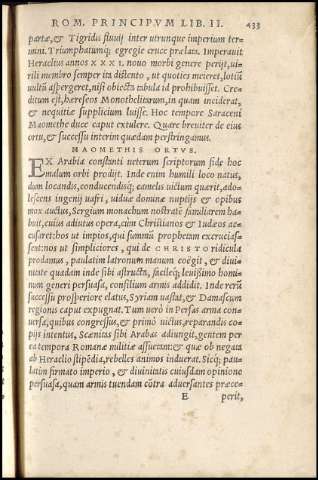 ROM. PRINCIPVM LIB. II. 433
partæ, & Tigrida fluuij inter utrunque imperium ter-
mini. Triumphatumq; egregie cruce prælata. Imperauit
Heraclius annos XXXI. nouo morbi genere perijt, ui-
rili membro semper ita distento, ut quoties meieret, lotiū
uultū aspergeret, nisi obiecta tabula id prohibuisset. Cre-
ditum est, hæreseos Monothelitarum, in quam inciderat,
& nequitiæ supplicium luisse. Hoc tempore Saraceni
Maomethe duce caput extulere. Quare breuiter de eius
ortu, & successu interim quædam perstringamus.
MAOMETHIS ORTVS.
EX Arabia constanti ueterum scriptorum fide hoc
malum orbi prodijt. Inde enim humili loco natus,
dum locandis, conducendisq; camelis uictum quærit, ado-
lescens ingenij uafri, uiduæ dominæ nuptijs & opibus
mox auctus, Sergium monachum nostratē familiarem ha-
buit, cuius adiutus opera, cùm Christianos & Iudæos ac-
cusaret: hos ut impios, qui summū prophetam excrucias-
sent: nos ut simpliciores, qui de CHRISTO ridicula
prodamus, paulatim latronum manum coëgit, & diui-
nitate quadam inde sibi astructa, facileq; leuissimo homi-
num generi persuasa, consilium armis addidit. Inde rerū
successu prosperiore elatus, Syriam uastat, & Damascum
regionis caput expugnat. Tum uerò in Persas arma con-
uersa, quibus congressus, & primò uictus, reparandis co-
pijs intentus, Scænitas sibi Arabas adiungit, gentem per
ea tempora Romanæ militiæ assuetam: & quæ ob negata
ab Heraclio stipēdia, rebelles animos induerat. Sicq; pau-
latim firmato imperio, & diuinitatis cuiusdam opinione
persuasa, quam armis tuendam cōtra aduersantes præce-
E perit,